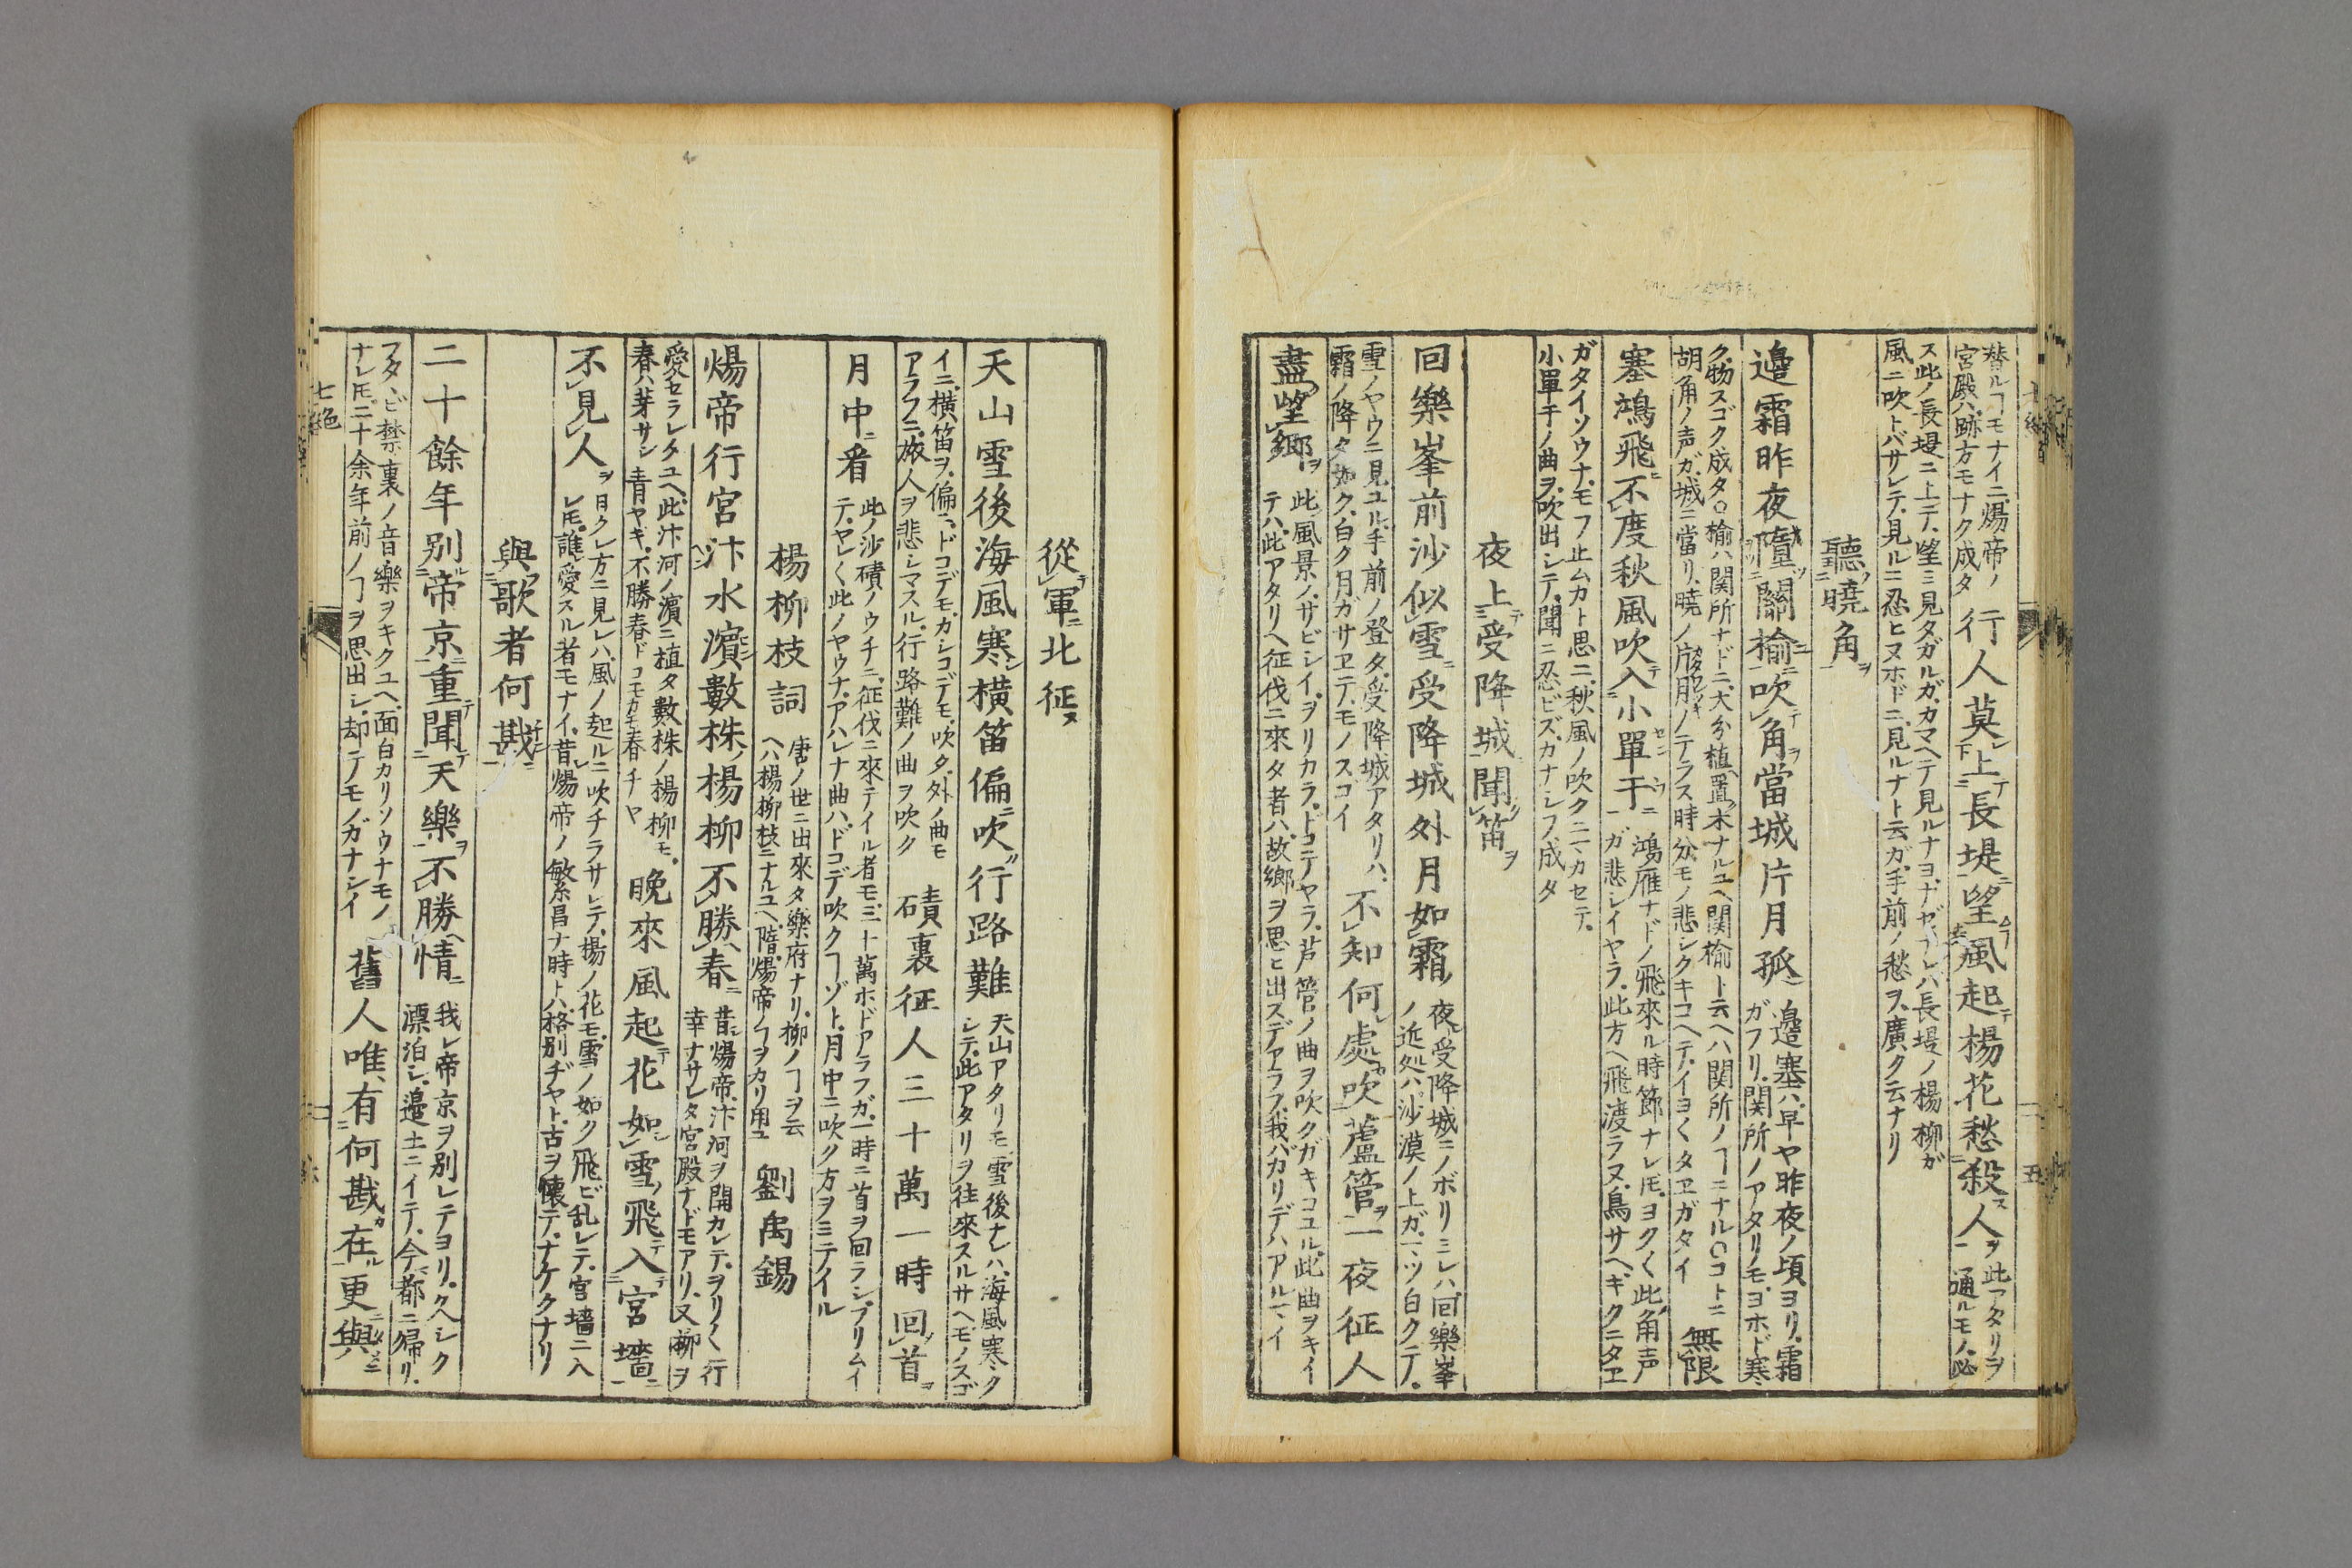 替ルヿモナイニ、煬帝ノ
宮殿ハ、跡方モナク成タ
行人莫上長堤望風起楊花愁殺人
此アタリヲ
通ルモノ、必
ス此ノ長堤ニ上テ、望ミ見タガルガ、カマヘテ見ルナヨ、ナゼナレバ長堤ノ楊柳ガ
風ニ吹トバサレテ、見ルニ忍ヒヌホドニ、見ルナト云ガ、手前ノ愁ヲ、廣ク云ナリ
聽曉角
邊霜昨夜墮關榆吹角當城片月孤
邊塞ハ、早ヤ昨夜ノ頃ヨリ、霜
ガフリ、関所ノアタリモ、ヨホド寒
ク、物スゴク成タ○榆ハ関所ナドニ、大分植置木ナルユヘ関榆ト云ヘハ関所ノヿニナル○コトニ
胡角ノ声ガ、城ニ當リ、曉ノ片月ノテラス時分、モノ悲シクキコヘテ、イヨ〱タヱガタイ
無限
塞鴻飛不度秋風吹入小單于
鴻雁ナドノ飛來ル時節ナレ𪜈、ヨク〱此角声
ガ悲シイヤラ、此方ヘ飛渡ラヌ、鳥サヘギクニタヱ
ガタイソウナ、モフ止ムカト思ニ、秋風ノ吹クニマカセテ、
小單于ノ曲ヲ、吹出シテ、聞ニ忍ビズ、カナシフ成タ
夜上受降城聞笛
回樂峯前沙似雪受降城外月如霜
夜受降城ニノボリミレハ、回樂峯
ノ近処ハ、沙漠ノ上ガ、一ツ白クテ、
雪ノヤウニ見ユル、手前ノ登タ、受降城アタリハ、
霜ノ降タ如ク、白ク月ガサヱテ、モノスゴイ
不知何處吹蘆管一夜征人
盡望鄉
此風景ノ、サビシイ、ヲリカラ、ドコテヤラ、芦管ノ曲ヲ吹クガキコユル、此曲ヲキイ
テハ、此アタリヘ征伐ニ來タ者ハ、故鄉ヲ思ヒ出スデアラフ、我バカリデハアルマイ
七絶
從軍北征
天山雪後海風寒横笛偏吹行路難
天山アタリモ、雪後ナレハ、海風寒ク
シテ、此アタリヲ往來スルサヘ、モノスゴ
イニ、横笛ヲ、偏ニ、ドコデモ、カシコデモ、吹タ、外ノ曲モ
アラフニ、旅人ヲ悲シマスル、行路難ノ曲ヲ吹ク
磧裏征人三十萬一時回首
月中看
此ノ沙磧ノウチニ、征伐ニ來テイル者モ、三十萬ホドアラフガ、一時ニ首ヲ回ラシ、フリムイ
テ、ヤレ〱此ノヤウナ、アハレナ曲ハ、ドコデ吹クヿゾト、月中ニ吹ク方ヲミテイル
楊柳枝詞
唐ノ世ニ出來タ樂府ナリ、柳ノヿヲ云
ヘハ楊柳枝ニナルユヘ、隋煬帝ノヿヲカリ用ユ
劉禹錫
煬帝行宮汴水濱數株楊柳不勝春
昔煬帝、汴河ヲ開カレテ、ヲリ〱行
幸ナサレタ宮殿ナドモアリ、又柳ヲ
愛セラレタユヘ、此汴河ノ濱ニ植タ數株ノ楊柳モ、
春ハ芽サシ 青ヤギ、不勝春ドコモカモ春チヤ
晩來風起花如雪飛入宮墻
不見人
日クレ方ニ見レハ、風ノ起ルニ吹チラサレテ、楊ノ花モ、雪ノ如ク飛ビ乱レテ、宮墻ニ入
レ𪜈、誰レ愛スル者モナイ、昔煬帝ノ敏系昌ナ時トハ、格別ヂヤト、古ヲ懐テ、ナケクナリ
與歌者何戡
二十餘年別帝京重聞天樂不勝情
我レ帝京ヲ別レテヨリ、久シク
漂泊シ、邊土ニイテ、今都ニ帰リ、
フタヽビ禁裏ノ音樂ヲキクユヘ、面白カリソウナモノ
ナレ𪜈、二十余年前ノヿヲ思出シ、却テモノガナシイ
舊人唯有何戡在更與
七絶